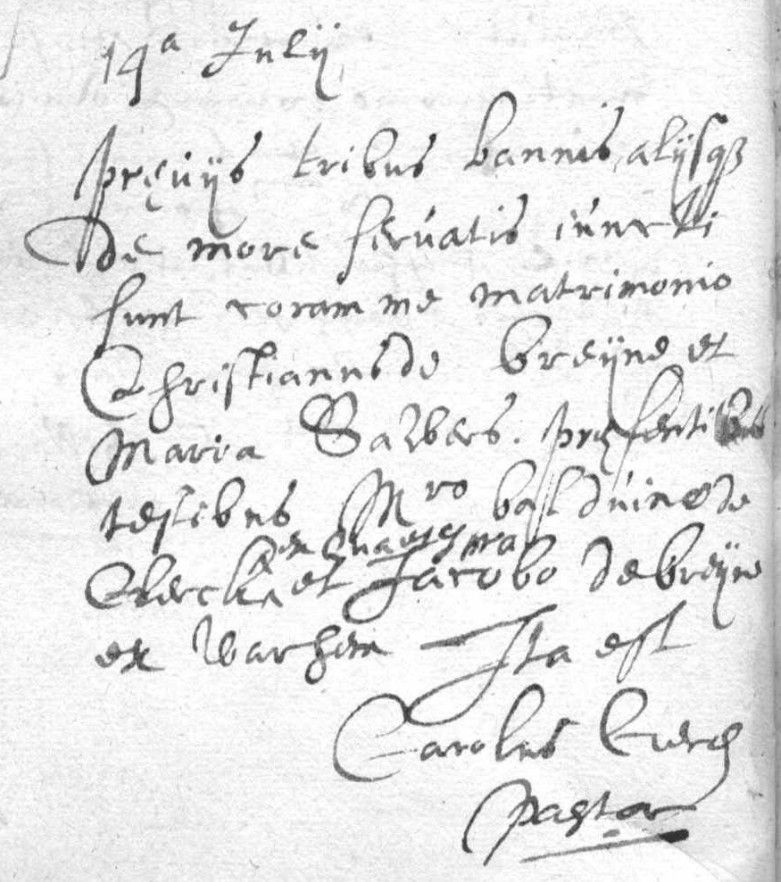 14a Julij
pręvijs tribus bannis, alijsq3
de more servatis iuncti
sunt coram me matrimonio
Christianus de Breijne et
Maria Balbers. pręsentibus
testibus Mro balduino de
ex
Clerck et Jacobo de breijne
ex Warhem Ita est
Carolus Clerch
pastor